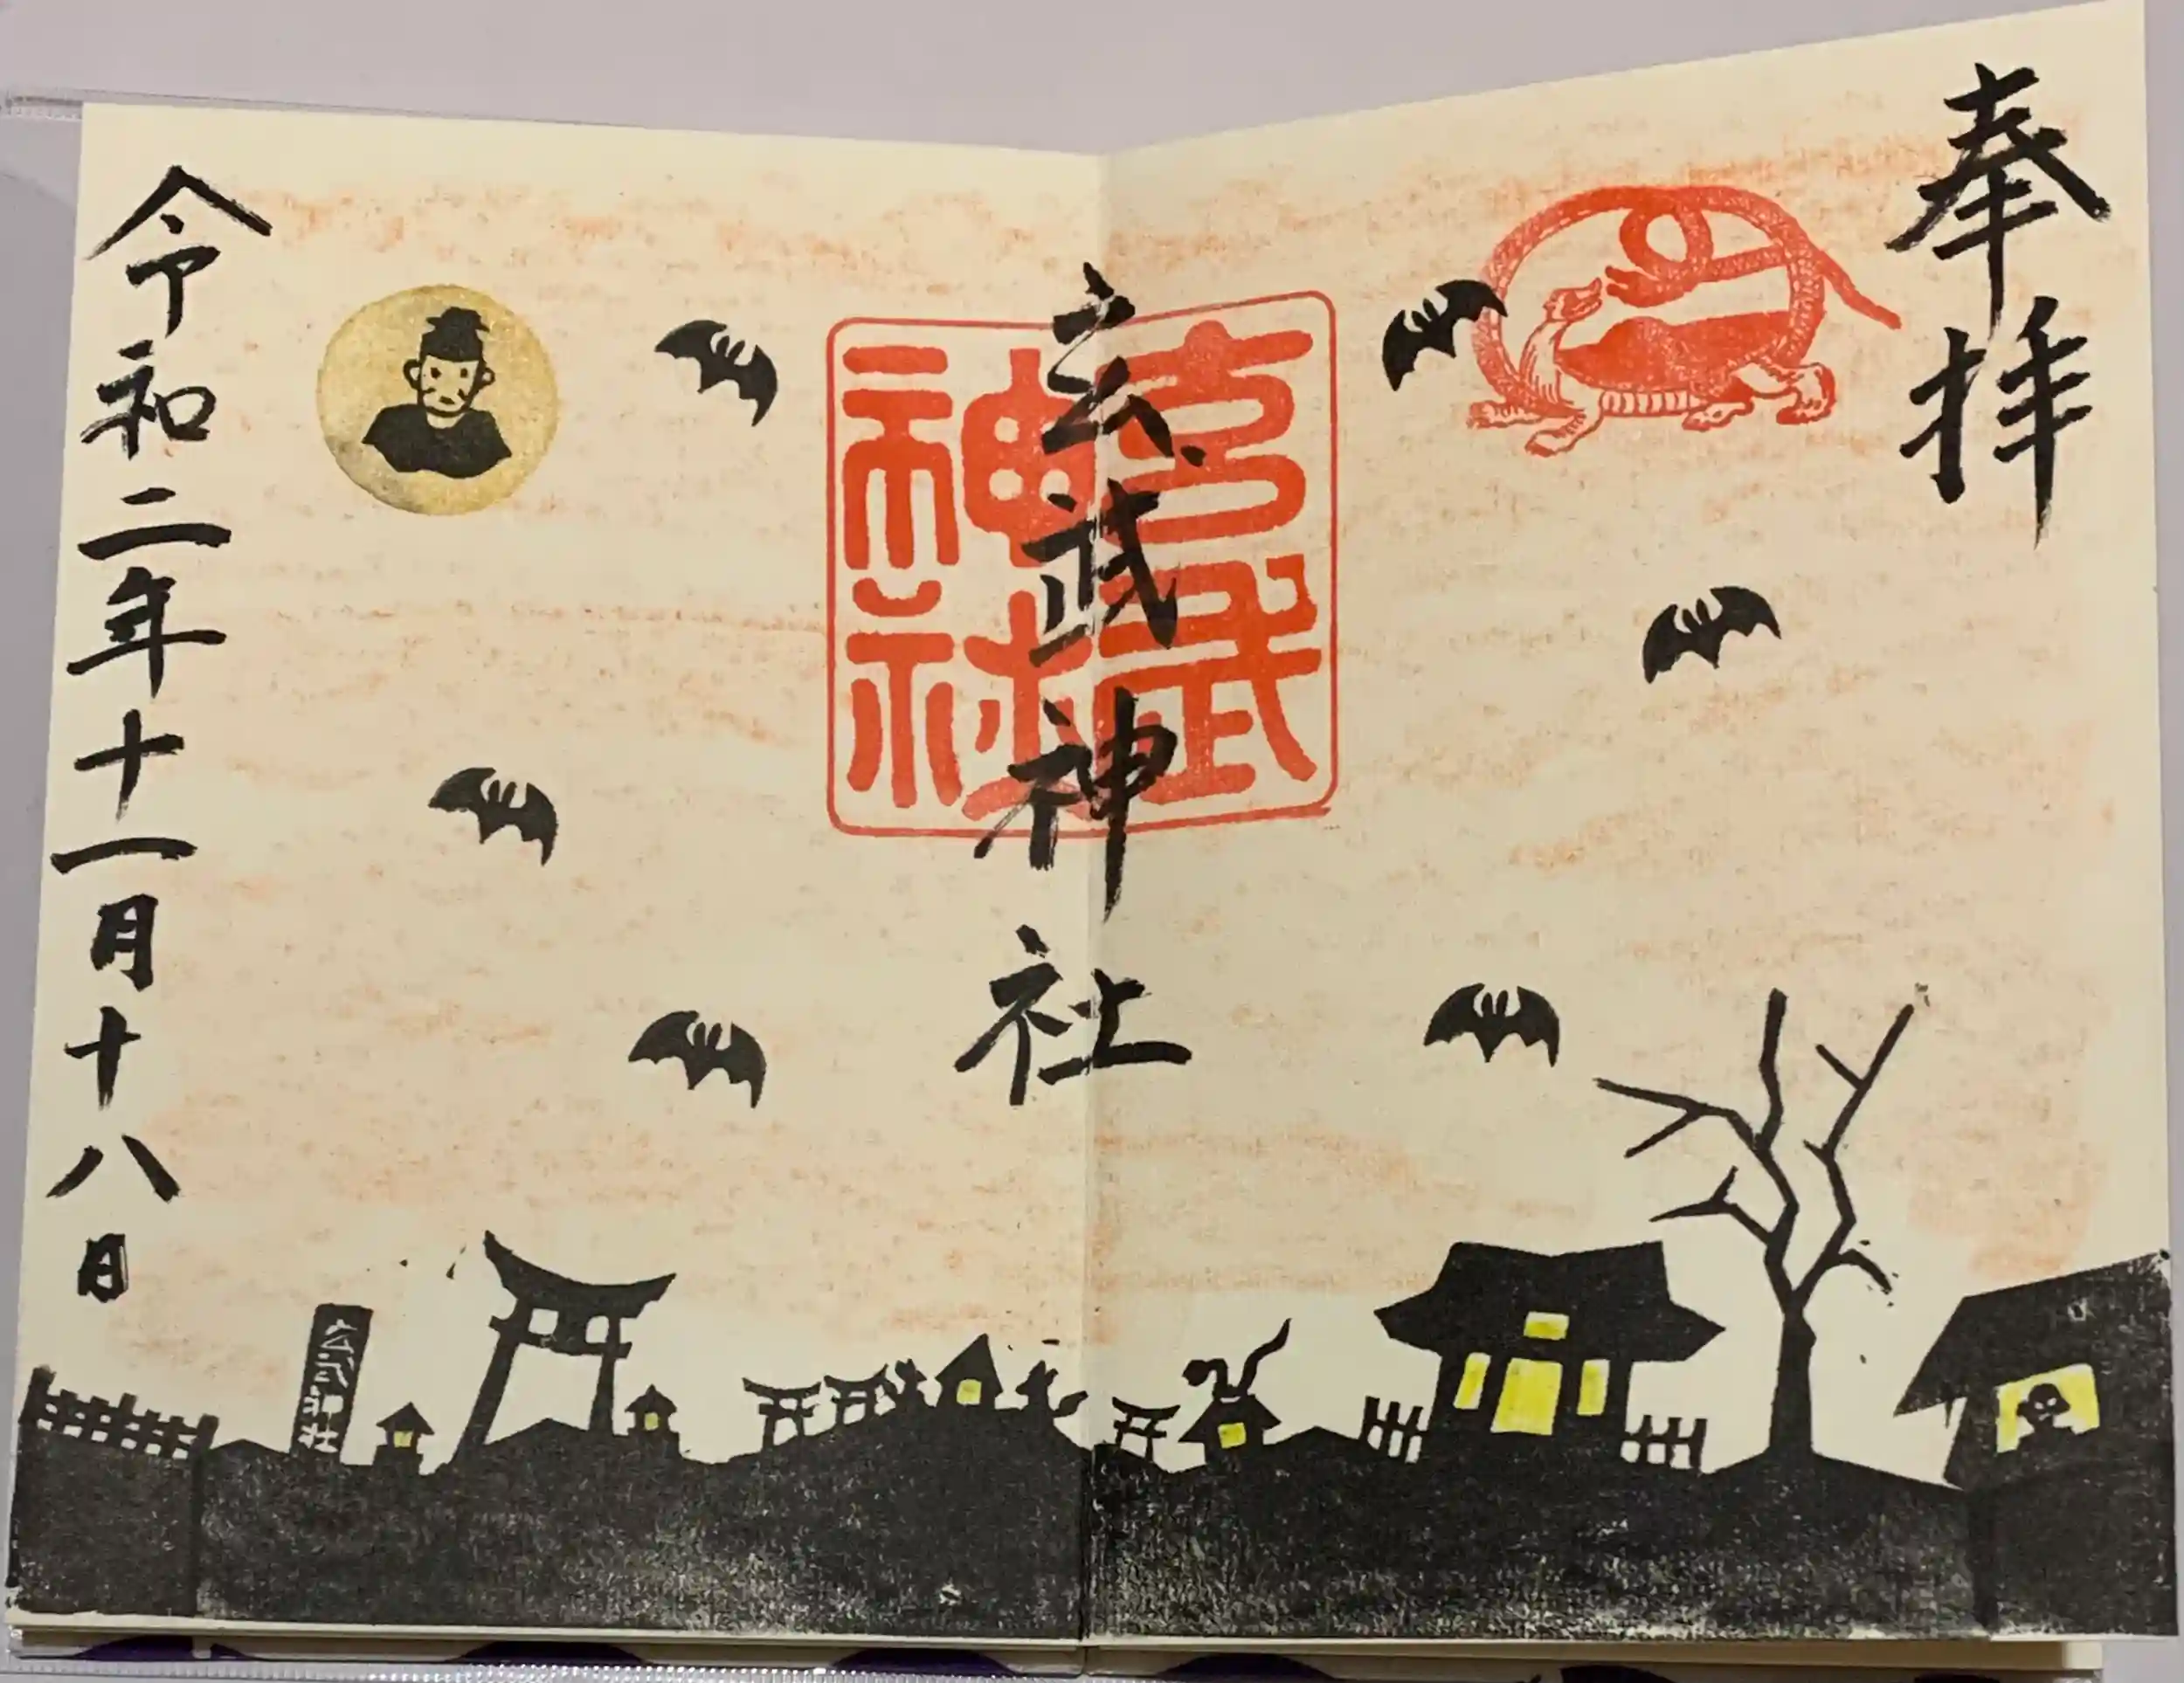 奉拝
玄武神社
玄武
神社
令和二年十一月十八日
玄武神社